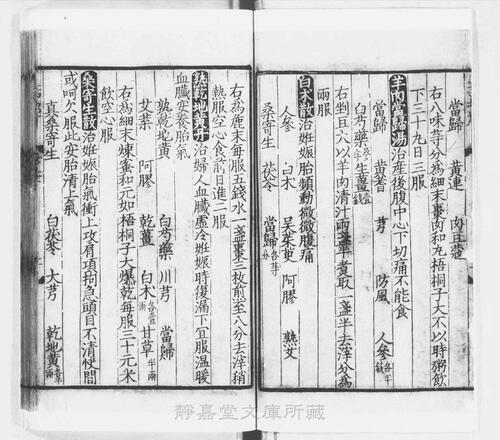 當歸 黃連 肉豆蔻
右八味等分爲細末棗肉和丸梧桐子大不以時粥飲
下三十九日三服
羊肉當歸湯治産後腹中心下切痛不能食
當歸 黃耆 芎 防風 人參
白芍藥 生薑
右剉且六以羊肉清汁兩盞半煮取一盞半去滓分爲
兩服
白朮散治姙娠胎頻動微微腹痛
人參 白朮 吳茱萸 阿膠 熟艾
桑寄生 茯苓 當歸
右爲麁末每服五錢水一盞棗三枚前至八分去滓稍
熱服空心食前日進二服
熟乾地黃丹治婦人血臓虛冷姙娠時復漏下冝服溫暖
血臓安養胎氣
熟乾地黃 白芍藥 川芎 當歸
艾葉 阿膠 乾薑 白朮 甘草半兩
右爲細末煉蜜和元如梧桐子大爆乾每服三十元米
飲空心服
桑寄生散治姙娠胎氣衝上攻有項拘急頭目不清快間
或呵欠服此安胎清上氣
真桑寄生 白茯苓 大芎 乾地黃
靜嘉堂文庫所藏